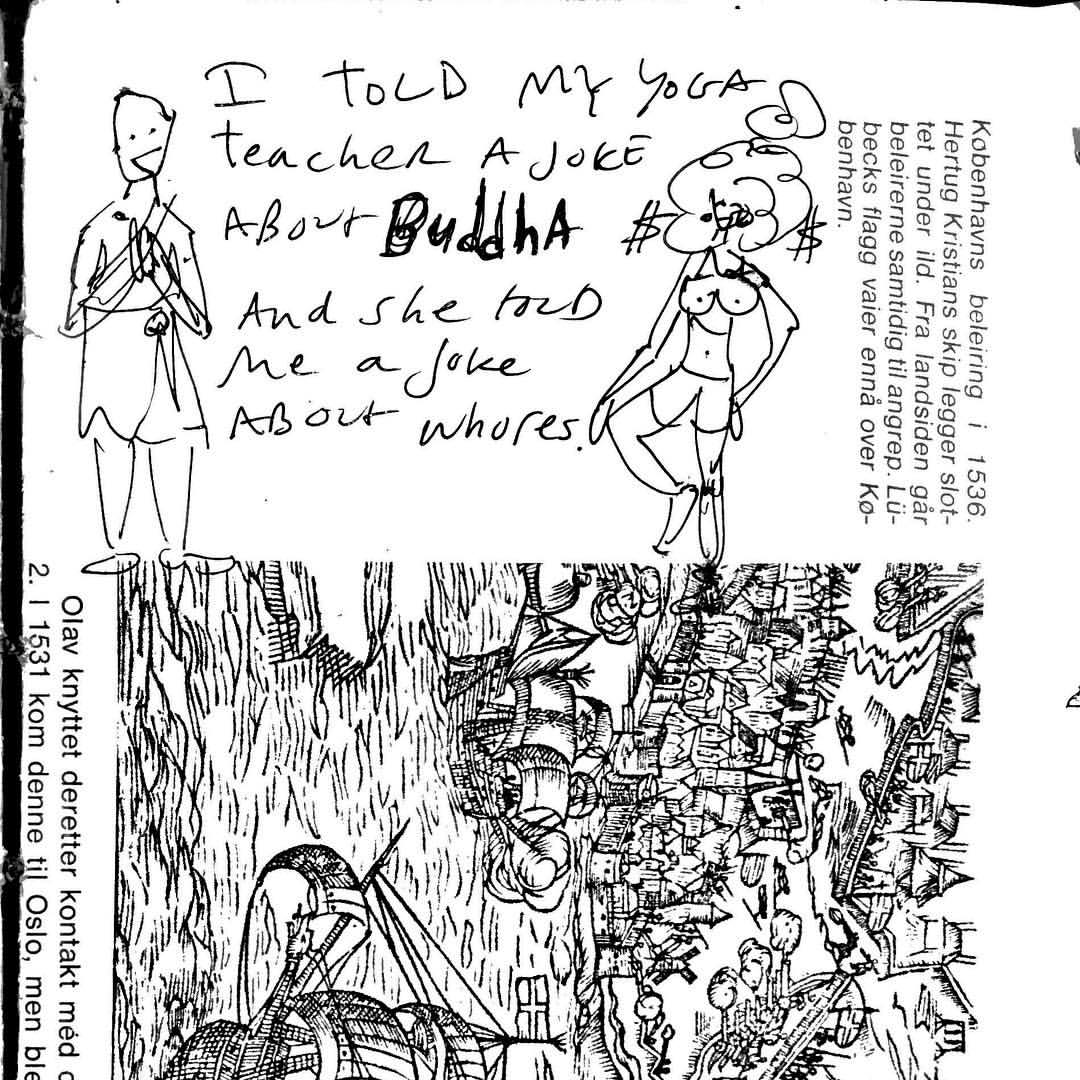 I TOLD MY YOGA
teacher A JOKE
ABOUT BuddhA
And she told
me a joke
ABOUT whores.
$ $
Københavns beleiring i 1536.
Hertug Kristians skip legger slot-
tet under ild. Fra landsiden går
beleirerne samtidig til angrep. Lü-
becks flagg vaier ennå over Kø-
benhavn.
Olav knyttet deretter kontakt med
2. I 1531 kom denne til Oslo, men ble